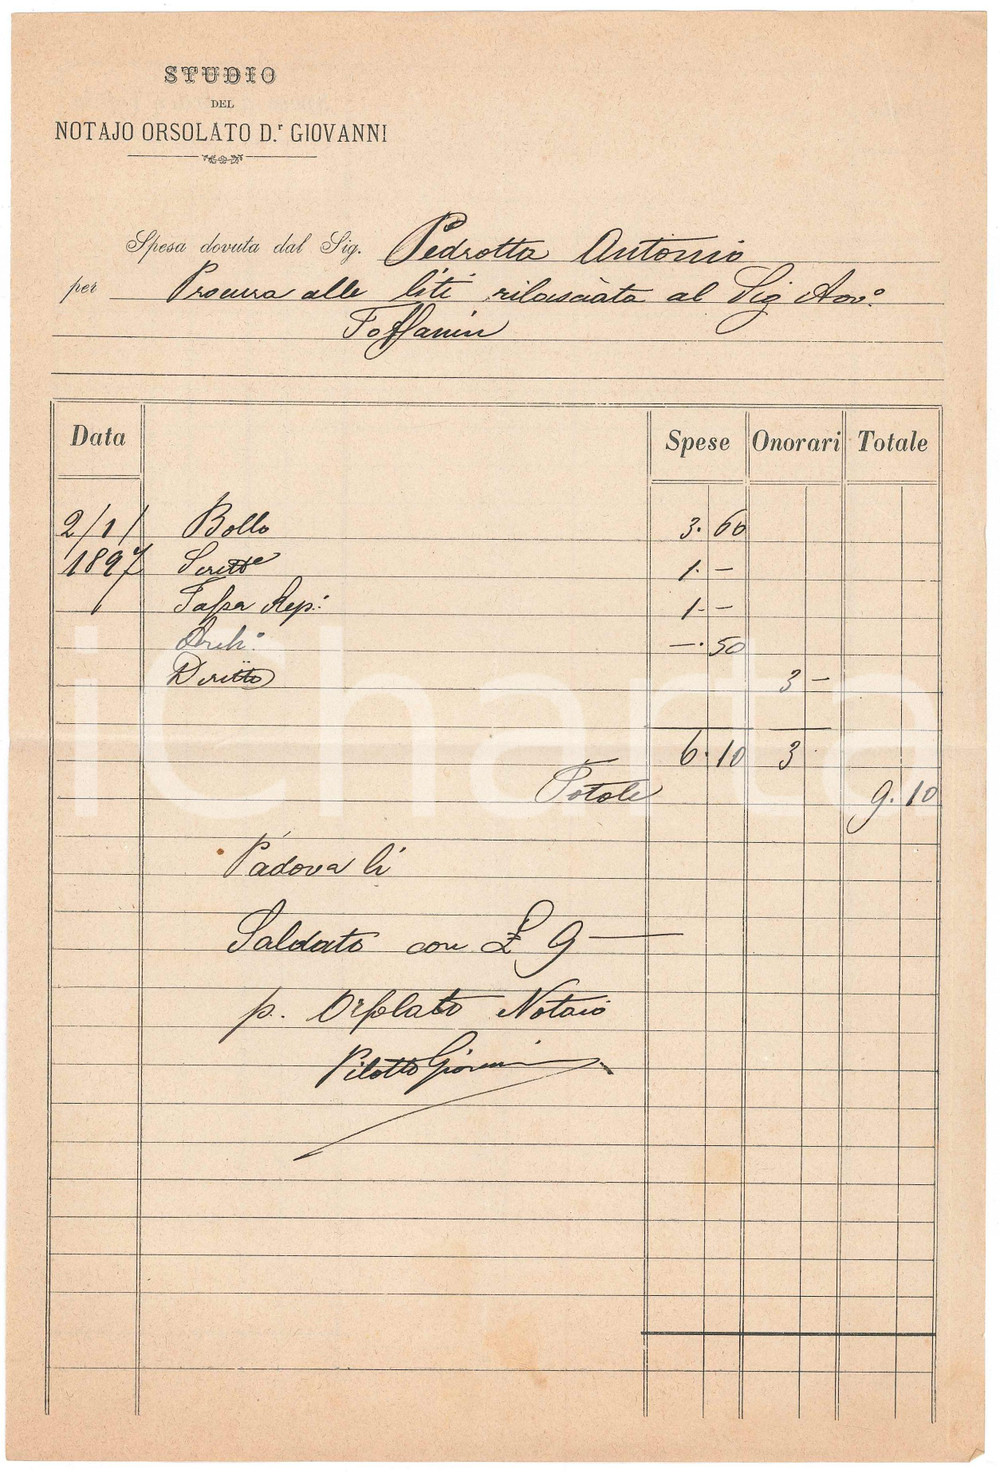 STUDIO
DEL
NOTAJO ORSOLATO D.r GIOVANNI
Spesa dovuta dal Sig. Pedrotta Antonio
per Procura alle liti rilasciata al Sig Avv.o
Toffanin
Data Spese Onorari Totale
2/1/ Bollo 3. 60
1897 Scritto 1. —
Tassa Rep: 1. —
Arch.o —. 50
Diritto 3 —
6. 10 3
Totale 9. 10
Padova li
Saldato con £ 9 —
p. Orsolato Notaio
Pilotto Giovanni
iCharta